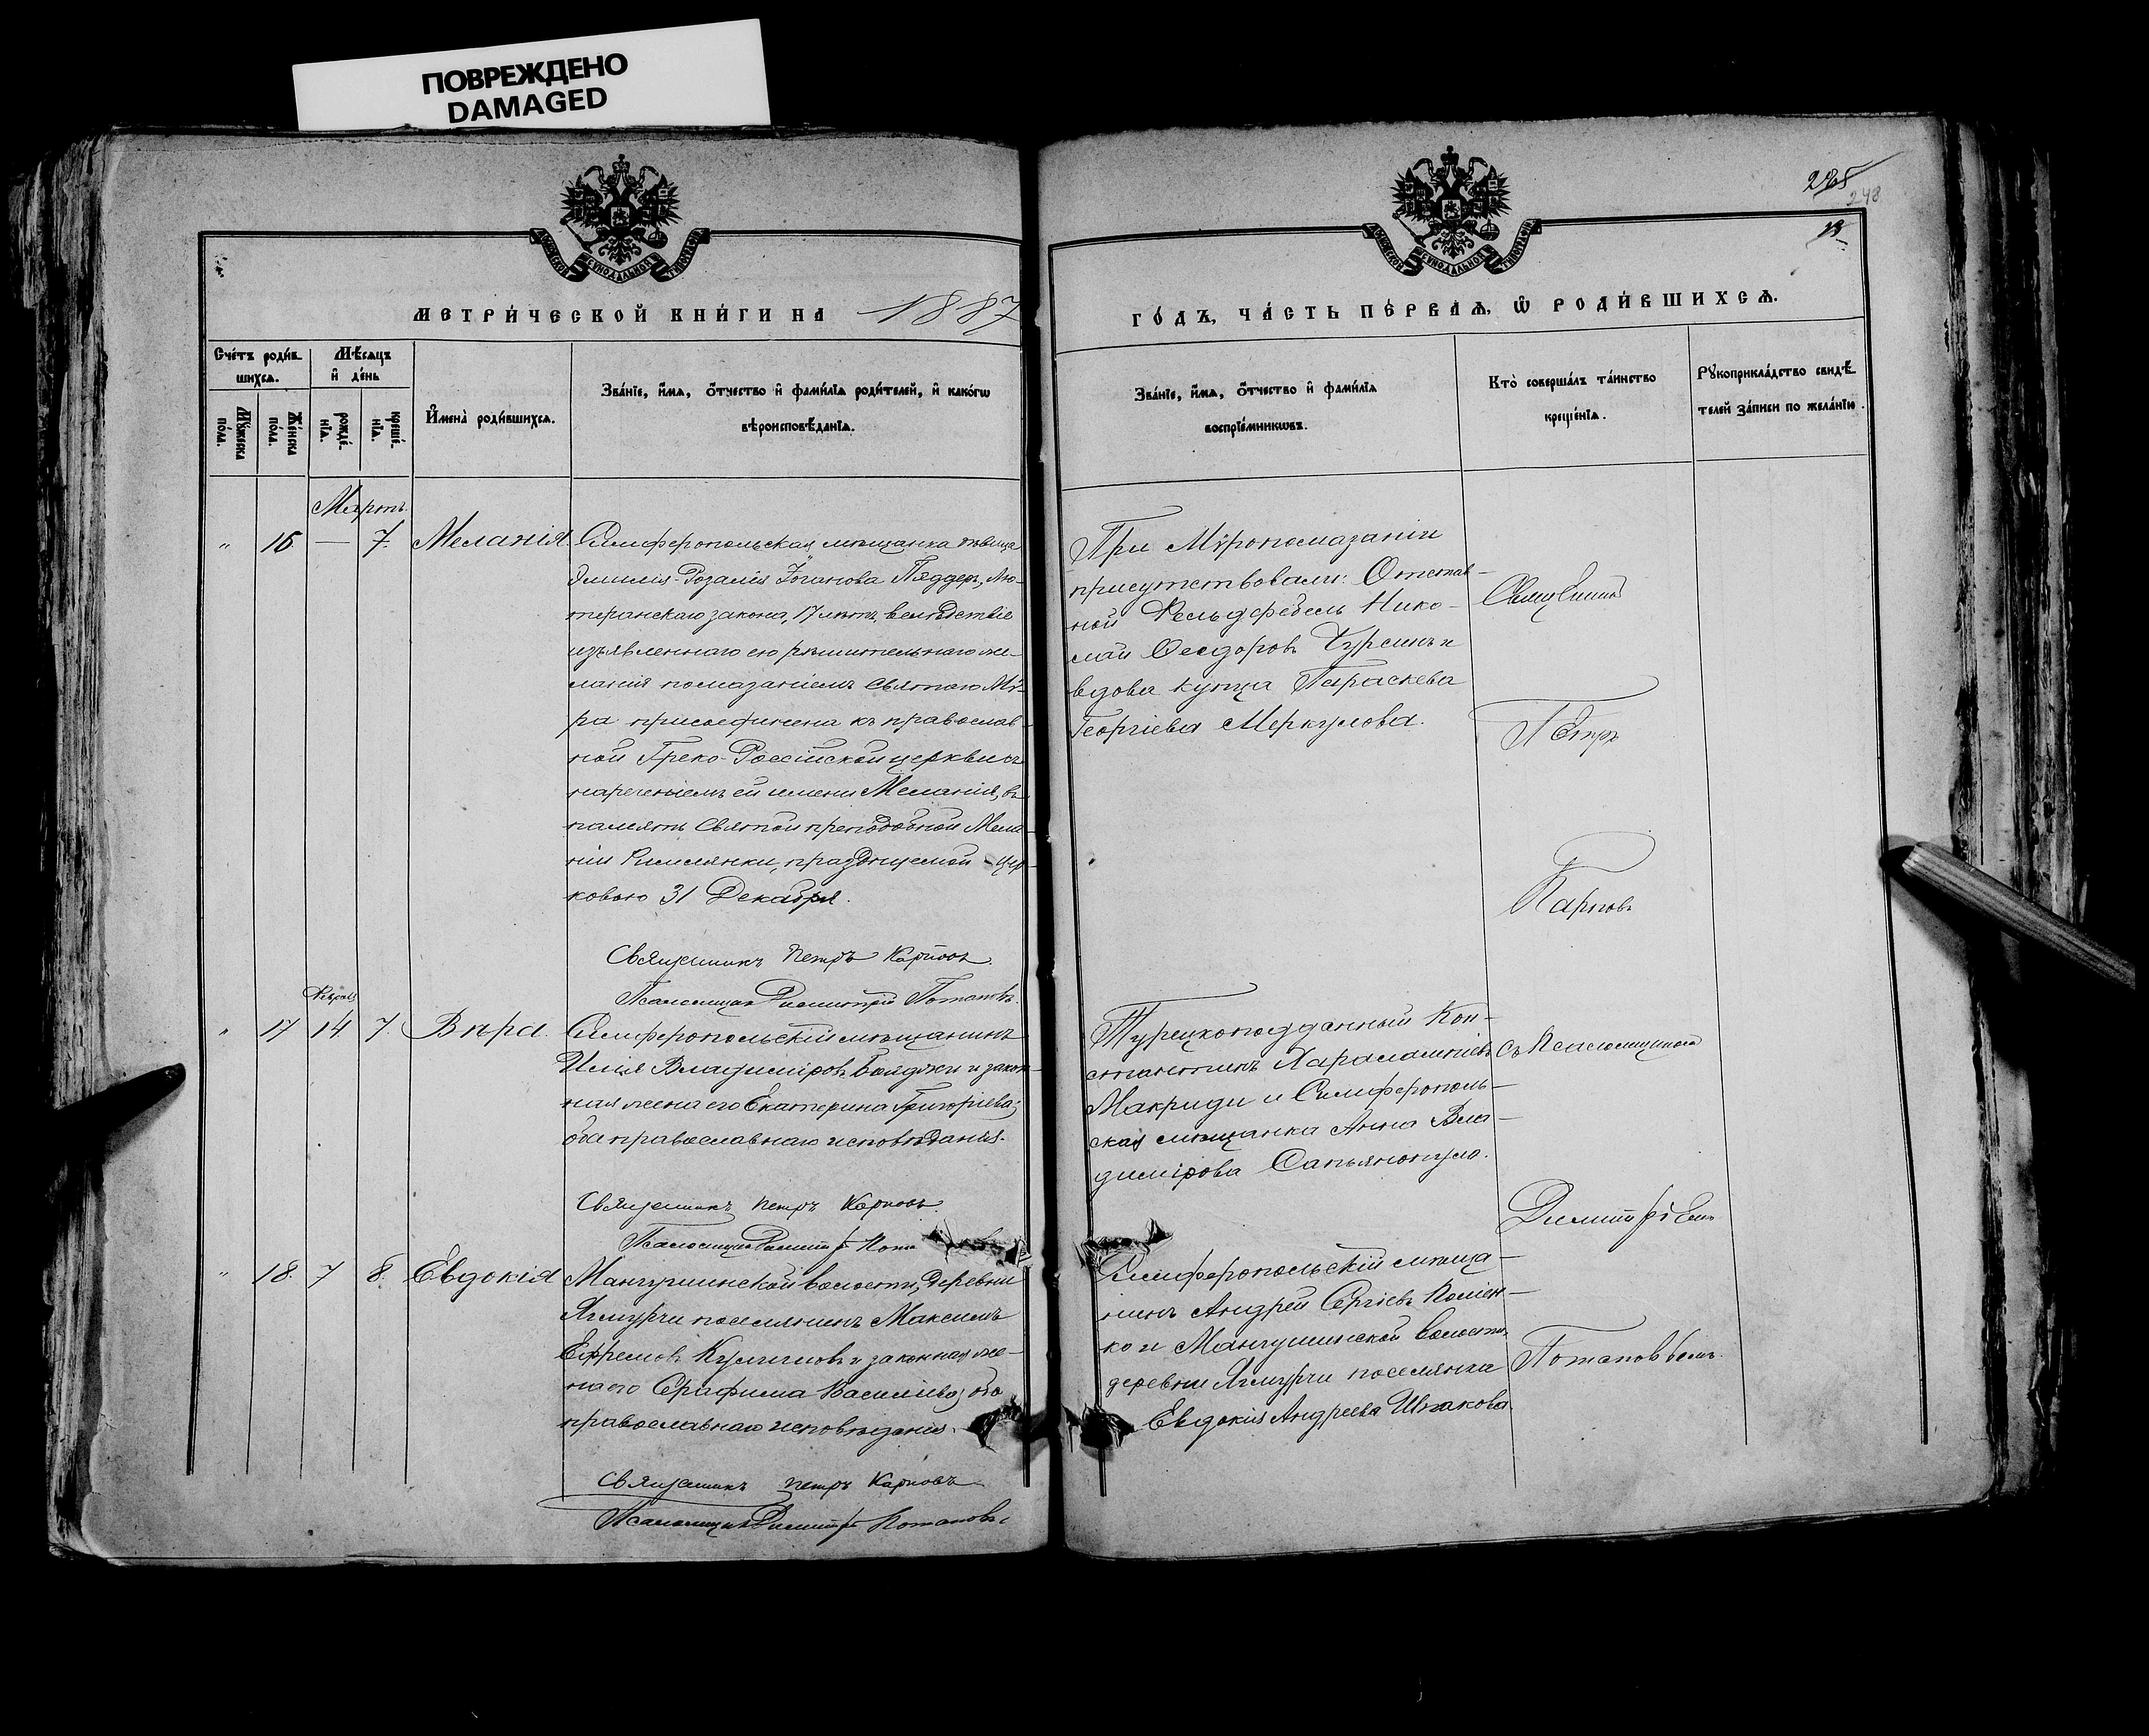 ПОВРЕЖДЕНО
DAMAGED
МЕТРИ́ЧЕСКОЙ КНИ́ГИ НА 1887
Сче́тъ роди́в
шихсѧ.
Мѣ́сяцъ
и҆ де́нь
Мꙋ́жеска
по́ла.
Же́нска
по́ла.
рожде́
нїѧ.
креще́
нїѧ.
И҆мена̀ роди́вшихсѧ.
Зва́нїе, и҆́мѧ, ѻ҆́тчество и҆ фами́лїѧ роди́телей, и҆ како́гѡ
вѣроисповѣ́данїѧ.
Мартъ
" 16 — 7. Меланія.
Симферопольская мѣщанка дѣвица
Эмилія-Розалія Іоганова Пяддеръ, Лю-
теранскаго закона, 17 лѣтъ, вслѣдствіе
изъявленнаго ею рѣшительнаго же-
ланія помазаніемъ Святаго Мѵ-
ра присоединена къ православ-
ной Греко-Россійской церкви съ
нареченіемъ ей имени Меланія, въ
память Святой преподобной Мела-
ніи Римлянки, празднуемой цер-
ковью 31 Декабря.
Священникъ Петръ Карповъ.
Псаломщикъ Димитрій Потаповъ.
Февраль
" 17 14 7. Вѣра.
Симферопольскій мѣщанинъ
Илія Владиміровъ Бояджи и закон-
ная жена его Екатерина Григоріева;
оба православнаго исповѣданія.
Священникъ Петръ Карповъ.
Псаломщикъ Димитр
" 18. 7 8. Евдокія
Мангушинской волости, деревни
Ягмурчи поселянинъ Максимъ
Ефремовъ и законная же-
на его Серафима Василіева; оба
православнаго исповѣданія.
Священникъ Петръ Карповъ
Псаломщикъ Димитр Потаповъ
285
248
13
ГО́ДЪ, ЧА́СТЬ ПЕ́РВАѦ, Ѽ РОДИ́ВШИХСѦ.
Зва́нїе, и҆́мѧ, ѻ҆́тчество и҆ фами́лїѧ
воспрїе́мникѡвъ.
Кто̀ соверша́лъ та́инство
креще́нїѧ.
Рꙋкоприкла́дство свидѣ́
телей за́писи по жела́нїю.
При Мѵропомазаніи
присутствовали: Отстав-
ной Фельдфебель Нико-
лай Ѳеодоровъ Чурсинъ и
вдова купца Параскева
Георгіева Меркулова.
Священникъ
Петръ
Карповъ
Турецкоподданный Кон-
стантинъ Харалампіевъ
Макриди и Симферополь-
ская мѣщанка Анна Вла-
димірова Сапьянопуло.
съ Псаломщикомъ
Димитріемъ
Потаповымъ.
Симферопольскій мѣща-
нинъ Андрей Сергіевъ
ко и Мангушинской волости,
деревни Ягмурчи поселянка
Евдокія Андреева Шпакова.